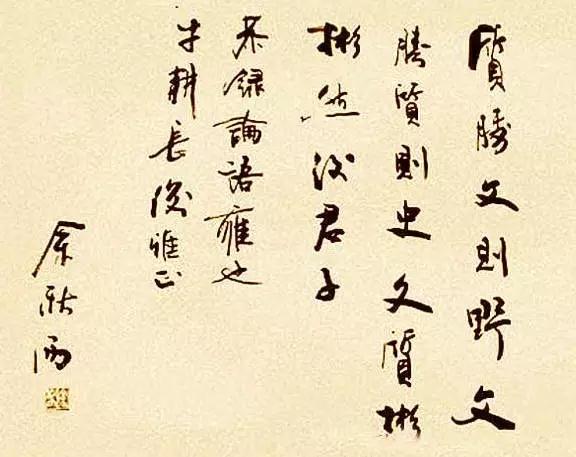 質勝文則野文
勝質則史文質彬
彬然後君子
恭録論語雍也
耕長雅正
余秋雨